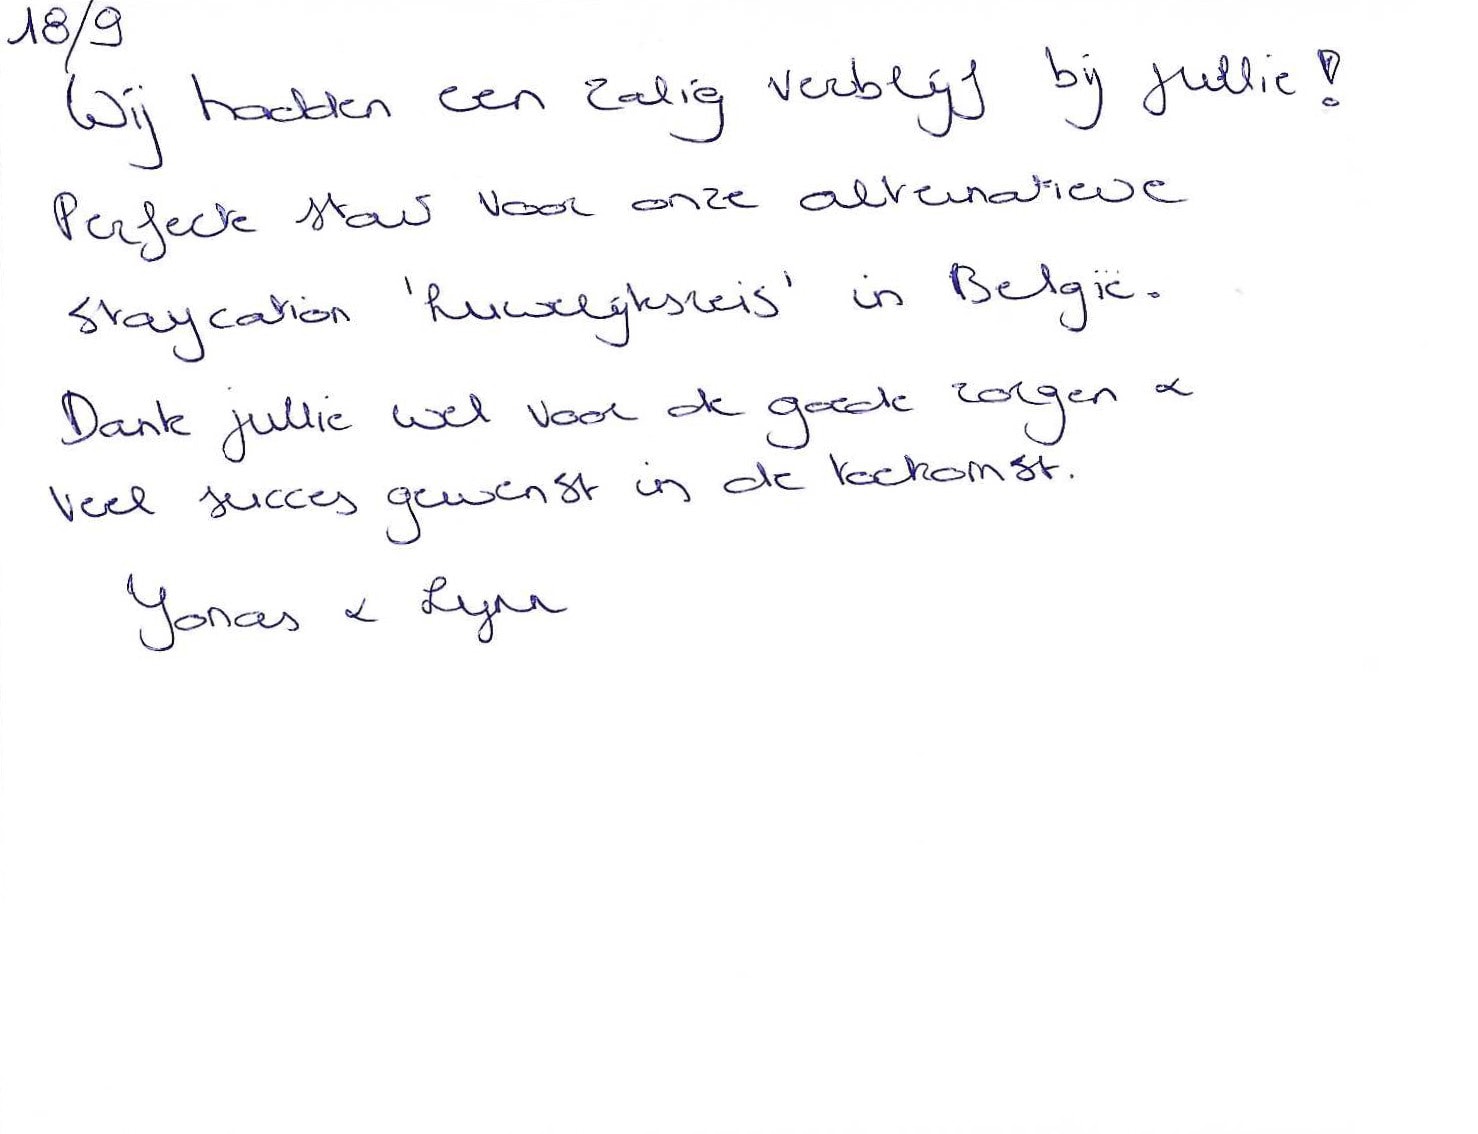 18/9
Wij hadden een zalig verblijf bij jullie!
Perfecte start voor onze alternatieve
staycation 'huwelijksreis' in België.
Dank jullie wel voor de goede zorgen &
veel succes gewenst in de toekomst.
Yonas & Lynn